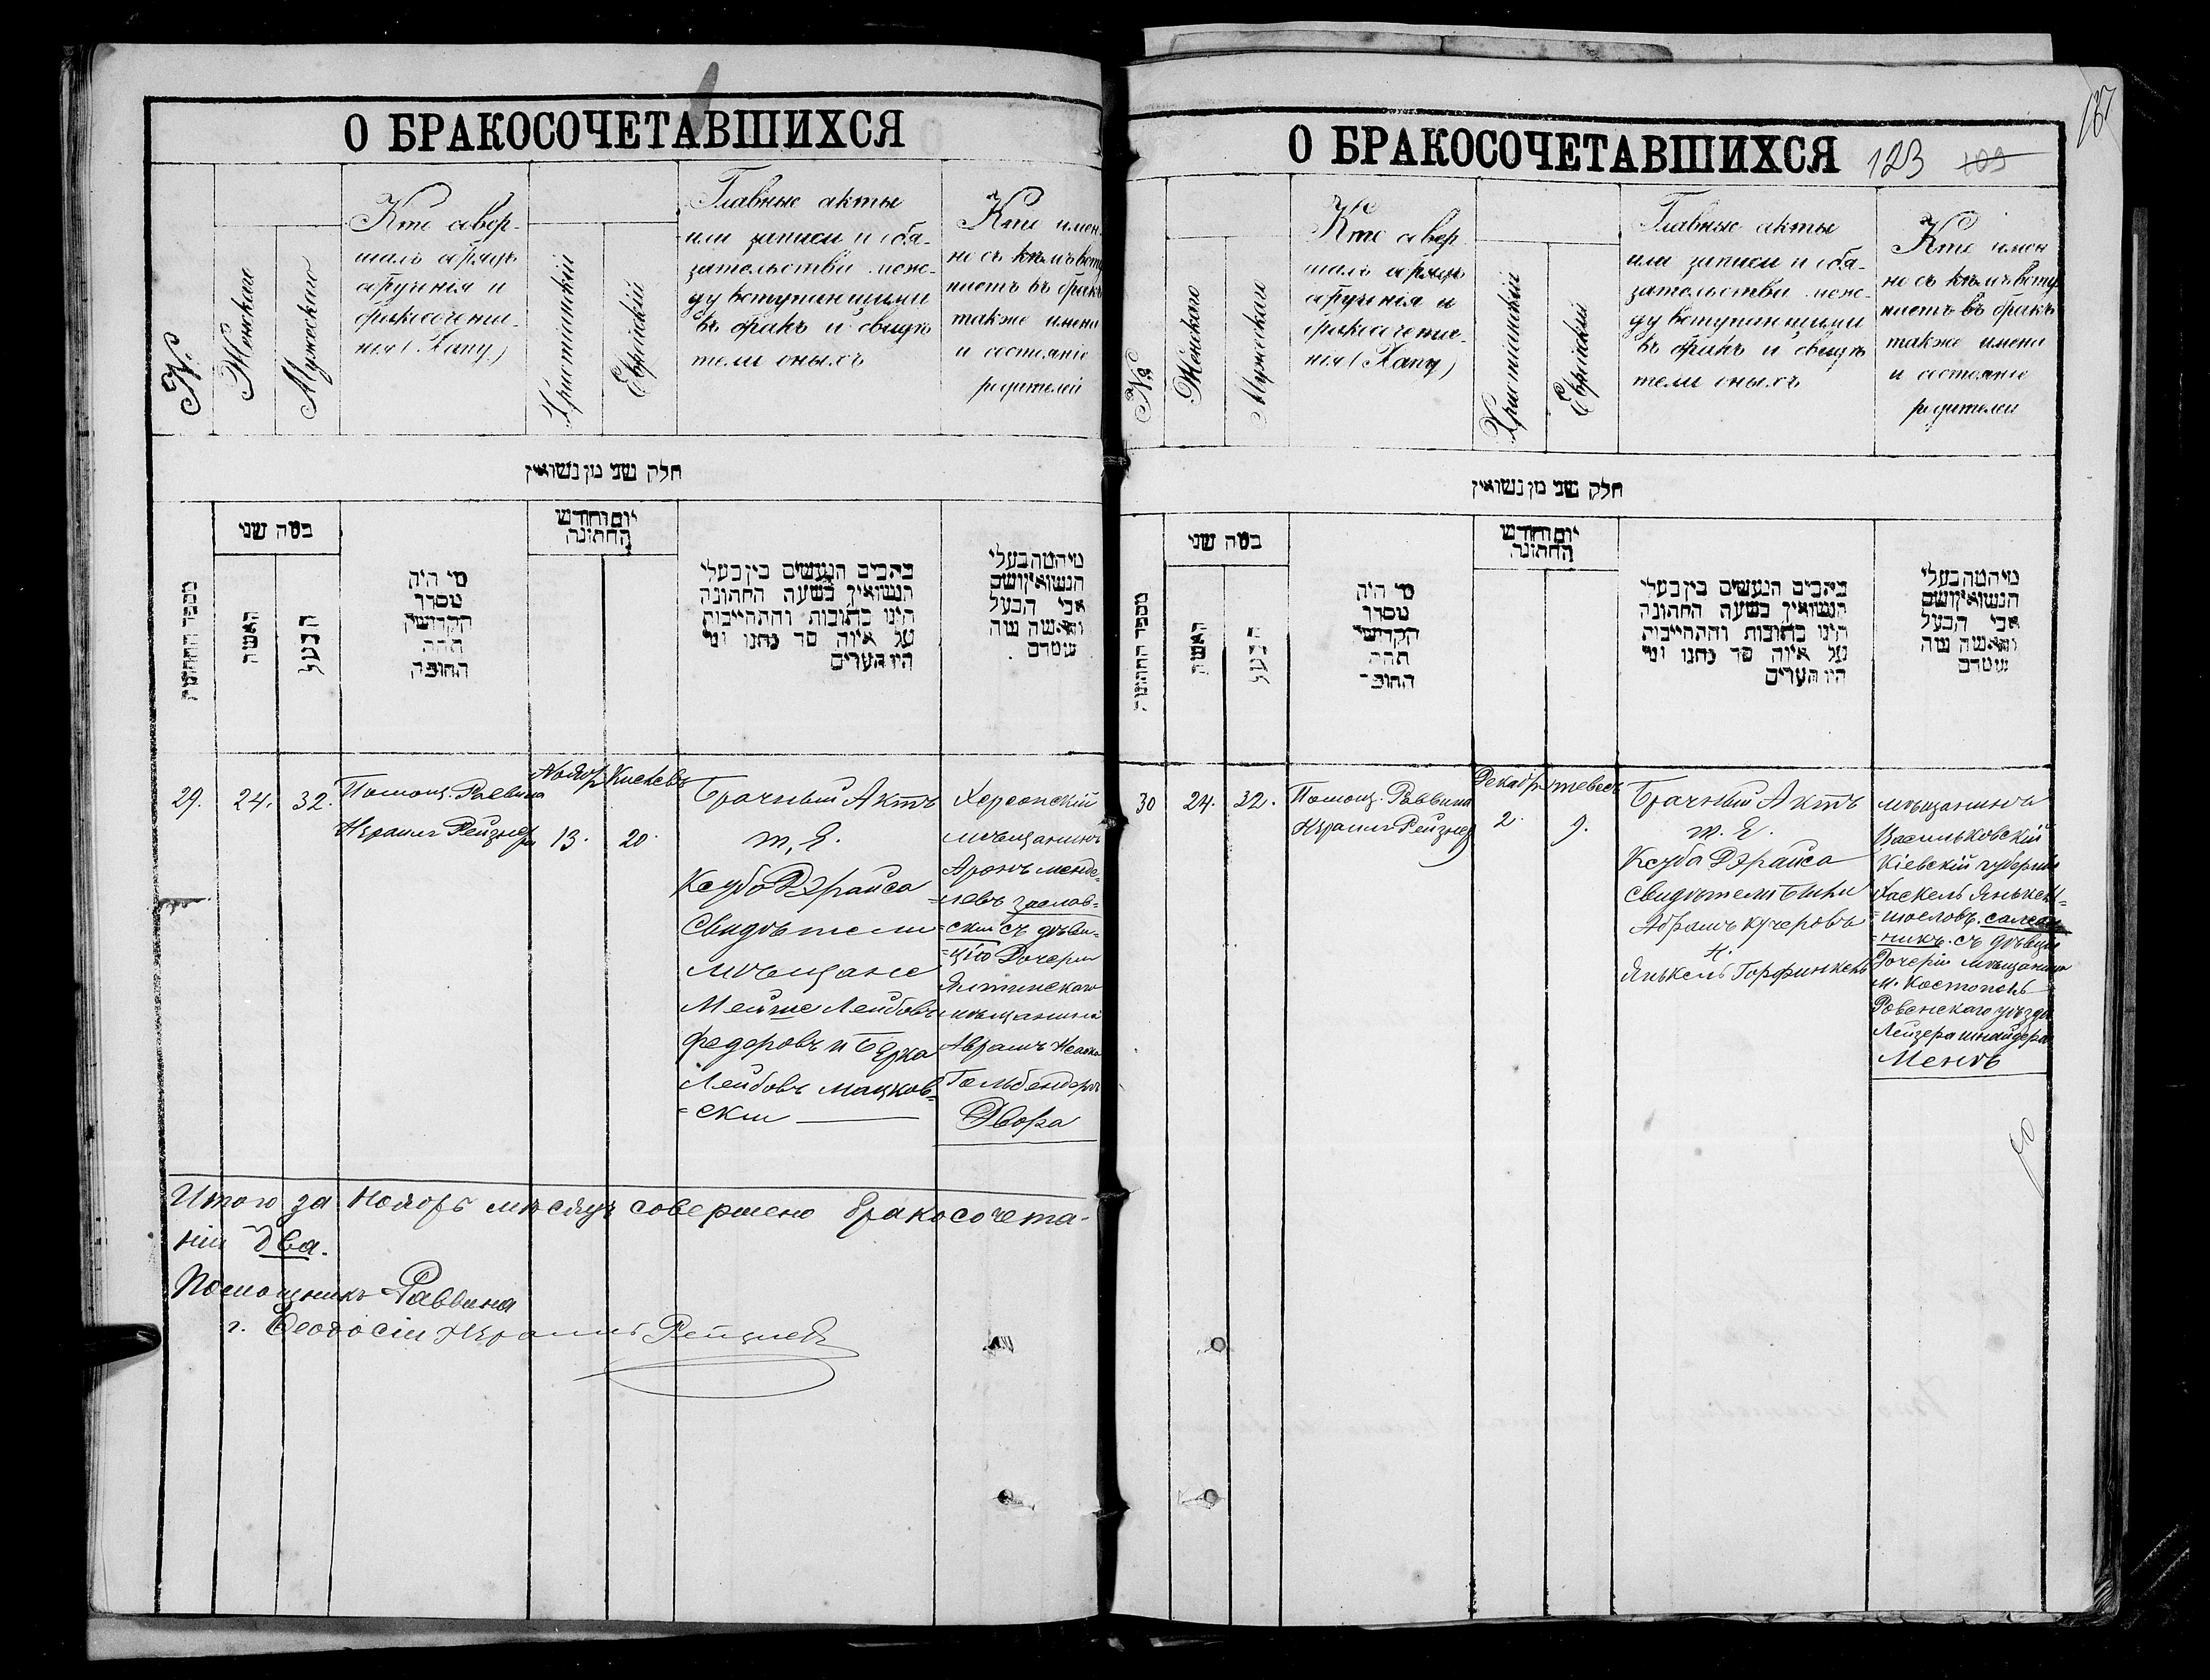 О БРАКОСОЧЕТАВШИХСЯ
№.
Женскаго
Мужескаго
Кто совер-
шалъ обрядъ
обрученія и
бракосочета-
нія (Хапу)
Христіанскій
Еврейскій
Главные акты
или записи и обя-
зательства меж-
ду вступающими
въ бракъ и свидѣ-
тели оныхъ
Кто имен
но съ кѣмъ всту
паетъ въ бракъ
также имена
и состояніе
родителей
חלק שני מן נשואין
מספר החתונות
כמה שני
האשה
הבעל
מי היה
מסדר
הקדושין
תחת
החופה
יום וחודש
החתונה
כתבים הנעשים בין בעלי
הנשואין בשעה החתונה
היינו כתובות והתחייבות
על איזה סך נתנו ומי
היו העדים
מי המה בעלי
הנשואין ושם
אבי הבעל
והאשה ומה
מעמדם
29.
24.
32.
Помощ. Раввина
Израиль Рейзнеръ
Нояб
13.
Кислевъ
20.
Брачный Актъ
т. Е.
Ксубо Дэрайса
Свидѣтели
мѣщане
Мейше Лейбовъ
Федоровъ и Берка
Лейбовъ Мацков-
=ски
Херсонскій
мѣщанинъ
Аронъ Менде-
=левъ Заслав-
=скій съ дѣви-
=цею Дочерью
Ялтинскаго
мѣщанина
Авраамъ
Гольбендеръ
Двора
Итого за Ноябрь мѣсяцъ совершено бракосочета-
ній два.
Помощникъ Раввина
г. Ѳеодосіи Израиль Рейзнеръ
О БРАКОСОЧЕТАВШИХСЯ 123 109
137
№
Женскаго
Мужескаго
Кто совер
шалъ обрядъ
обрученія и
бракосочета-
нія (Хапу)
Христіанскій
Еврейскій
Главные акты
или записи и обя-
зательства меж-
ду вступающими
въ бракъ и свидѣ
тели оныхъ
Кто имен
но съ кѣмъ всту
паетъ въ бракъ
также имена
и состояніе
родителей
חלק שני מן נשואין
מספר החתונות
כמה שני
האשה
הבעל
מי היה
מסדר
הקדושין
תחת
החופה
יום וחודש
החתונה
כתבים הנעשים בין בעלי
הנשואין בשעה החתונה
היינו כתובות והתחייבות
על איזה סך נתנו ומי
היו העדים
מי המה בעלי
הנשואין ושם
אבי הבעל
והאשה ומה
מעמדם
30
24.
32.
Помощ. Раввина
Израиль Рейзнеръ
Декабр
2.
тевесъ
9.
Брачный Актъ
т. Е.
Ксуба Дэрайса
Свидѣтели были
Абрамъ Кучеровъ
и
Янкель Горфинкель
мѣщанинъ
Васильковскій
Кіевской губерніи
Хаскель Янкель-
съ дѣвицею
Дочерію мѣщанина
м. Костополь
Ровенскаго уѣзда
Лейзера Шнайдера